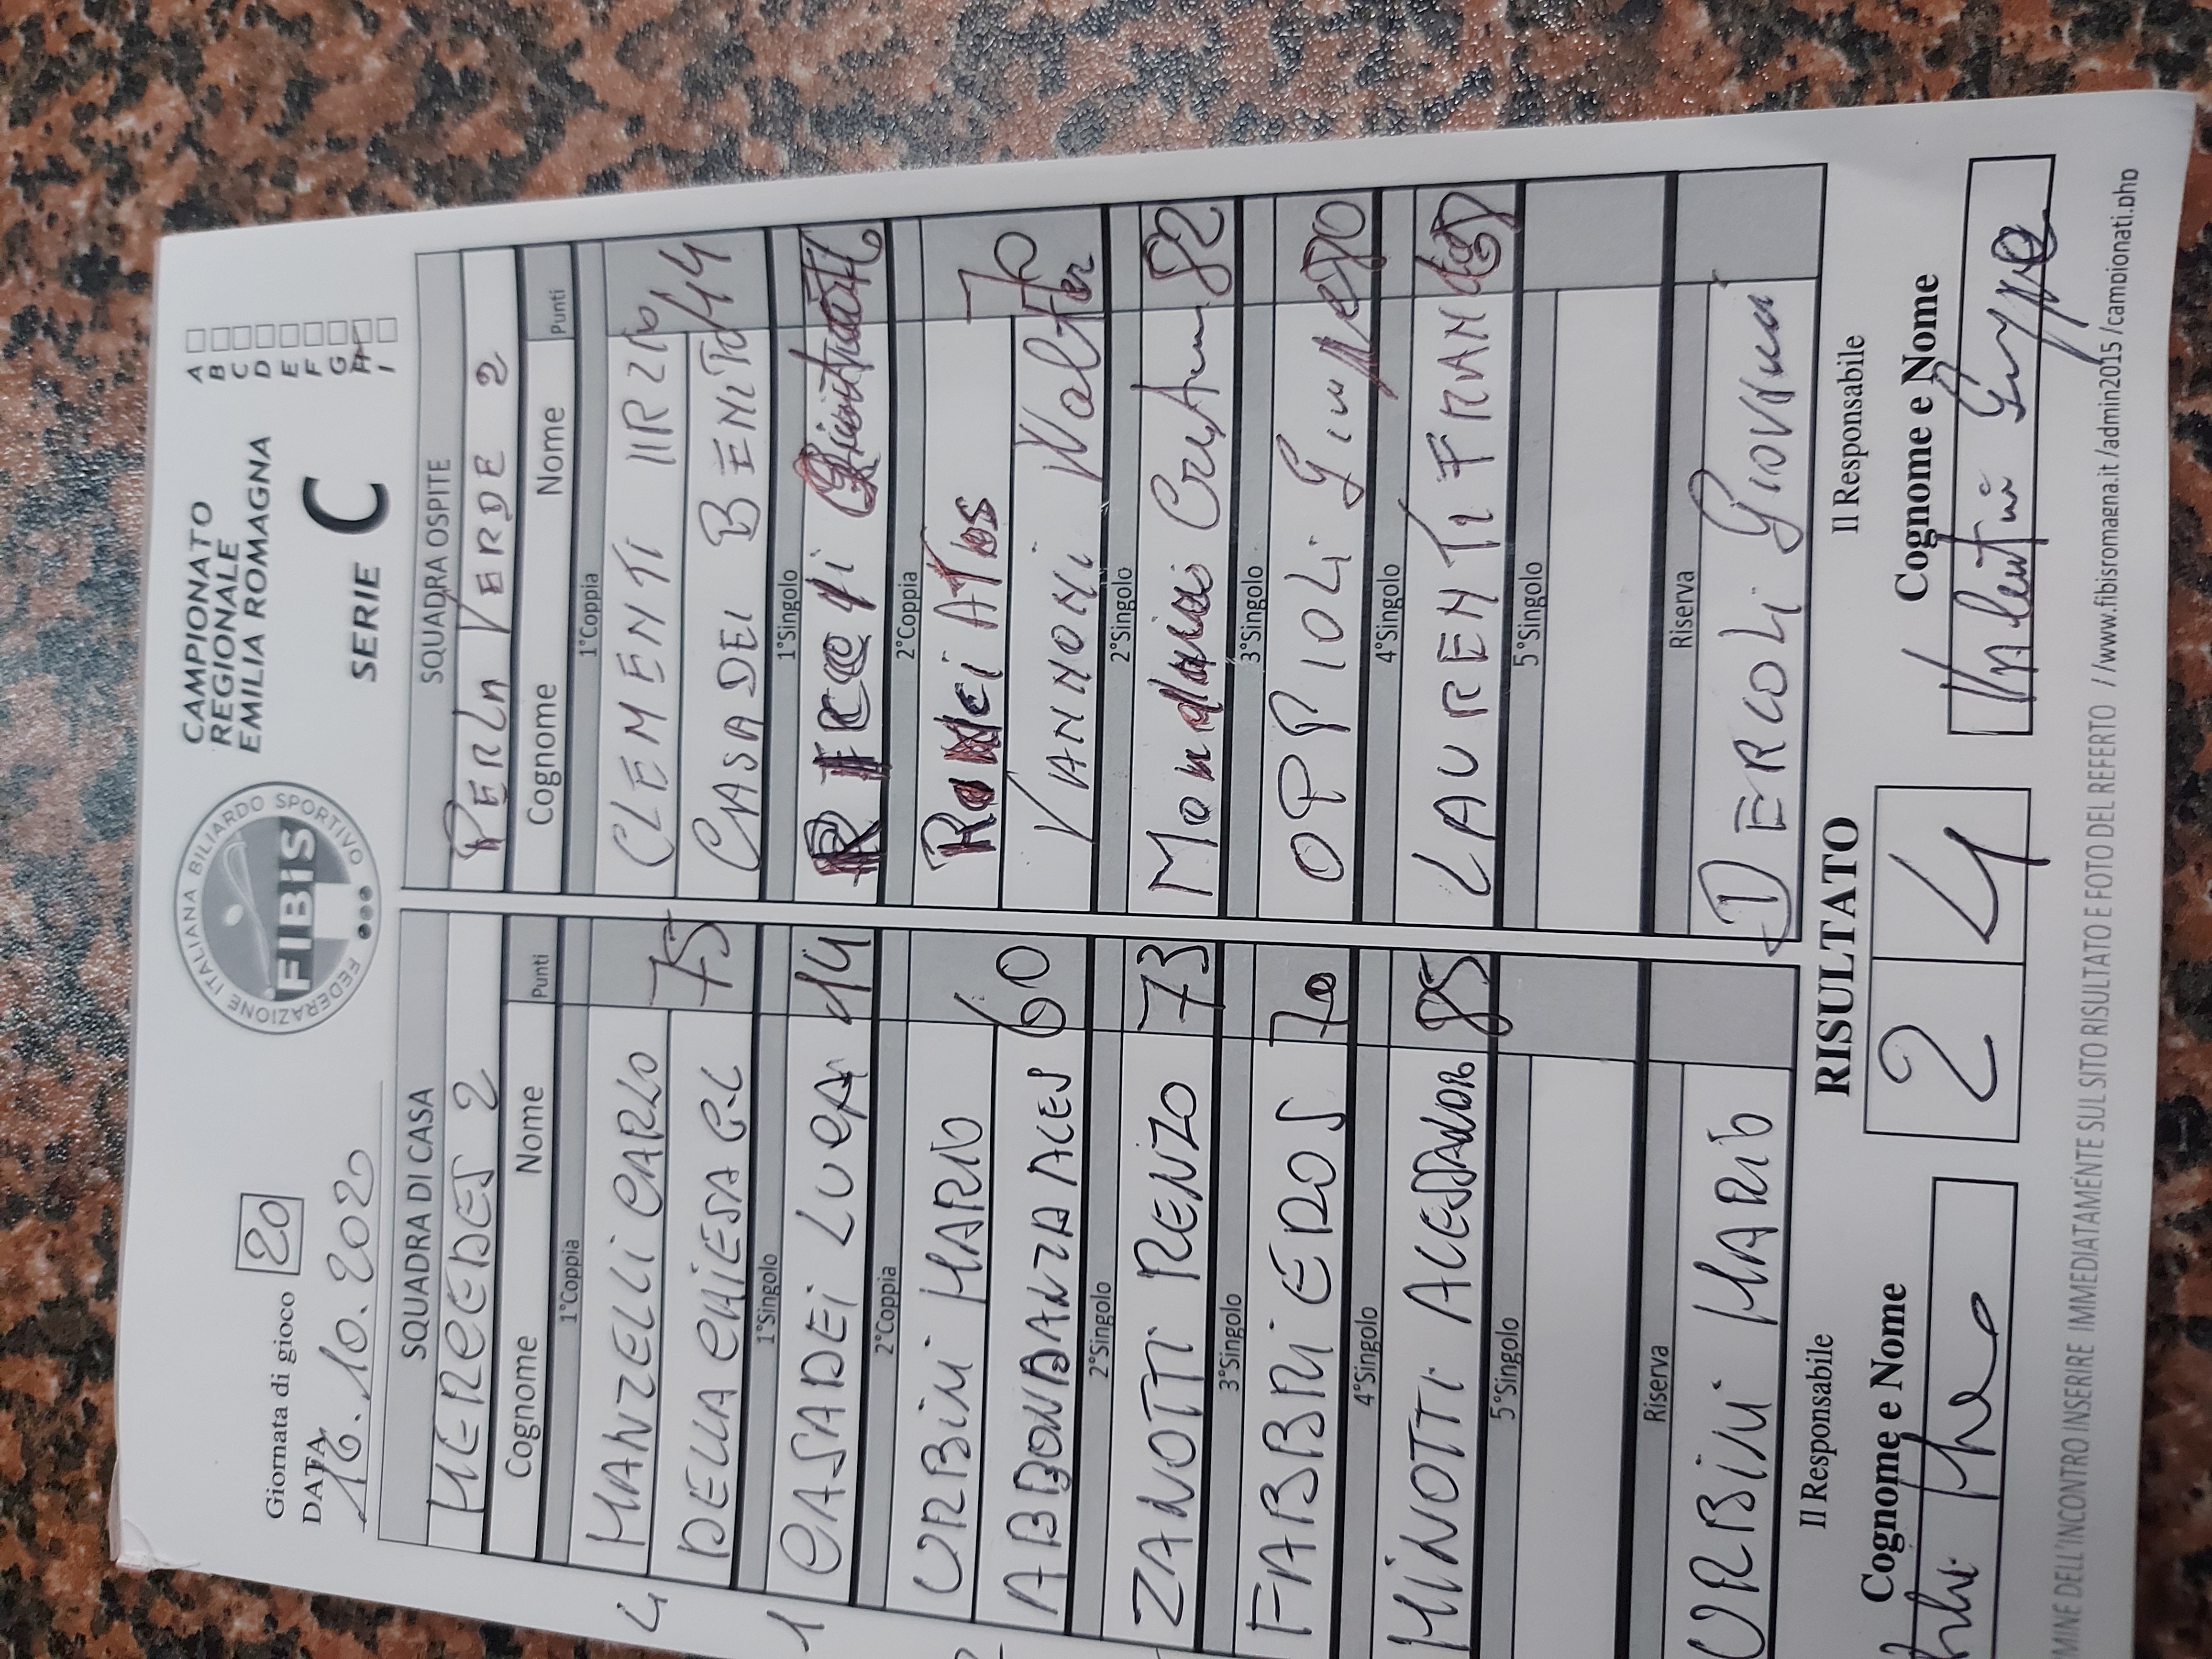 Giornata di gioco 20
DATA 16.10.202
FEDERAZIONE ITALIANA BILIARDO SPORTIVO
FIBiS
CAMPIONATO
REGIONALE
EMILIA ROMAGNA
SERIE C
A
B
C
D
E
F
G
H
I
SQUADRA DI CASA
MERCEDES 2
Cognome Nome Punti
1°Coppia
4 MANZELLI CARLO
DELLA CHIESA P.L 75
1°Singolo
1 CASADEI LUCA 114
2°Coppia
URBINI MARIO
ABBONDANZA ALES 60
2°Singolo
ZANOTTI RENZO 73
3°Singolo
FABBRI EROS 70
4°Singolo
MINOTTI ALESSANDR 85
5°Singolo
Riserva
URBINI MARIO
SQUADRA OSPITE
PERLA VERDE 2
Cognome Nome Punti
1°Coppia
CLEMENTI IIRZIO
CASADEI BENITO 44
1°Singolo
2°Coppia
Ronci ATos
VANNONI Walter 70
2°Singolo
82
3°Singolo
OPPIOLI
4°Singolo
LAURENTI FRAN
5°Singolo
Riserva
DERCOLI
RISULTATO
2 4
Il Responsabile
Cognome e Nome
Il Responsabile
Cognome e Nome
MINE DELL'INCONTRO INSERIRE IMMEDIATAMENTE SUL SITO RISULTATO E FOTO DEL REFERTO //www.fibisromagna.it/admin2015/campionati.php